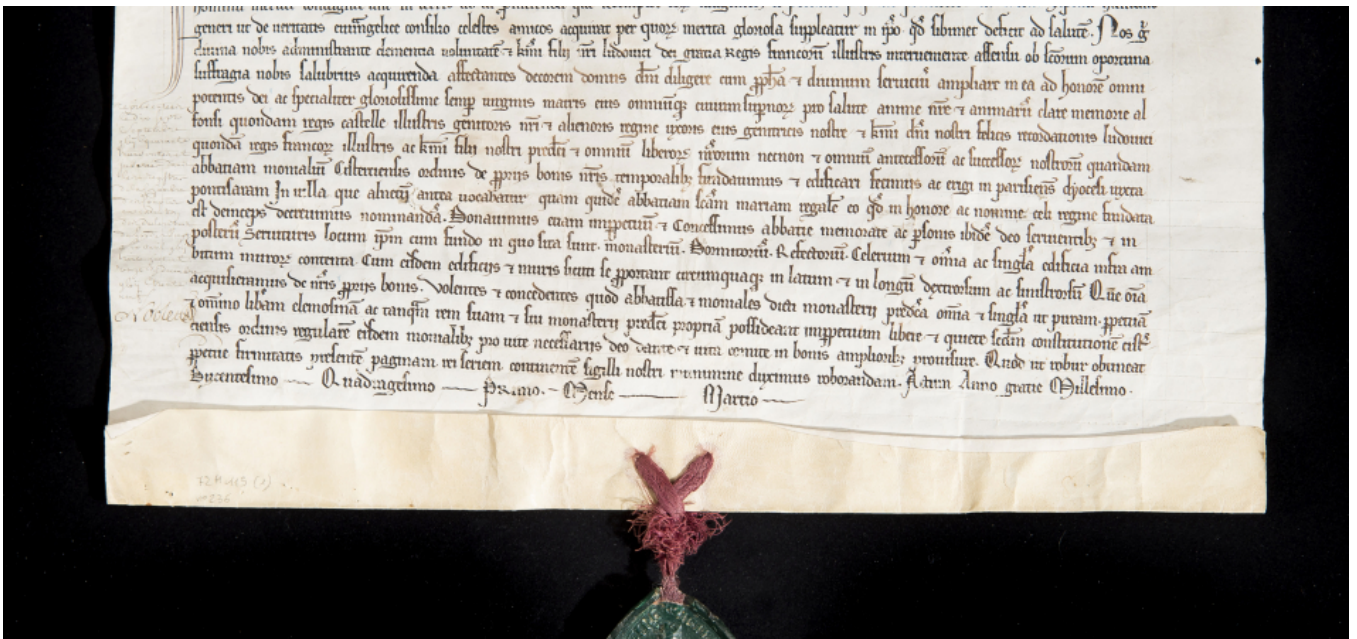 generi ut de ueritatis euangelice consilio celestes amicos acquirat per quorꝫ merita gloriosa suppleatur in ipo qd sibimet deficit ad salutē. Nos g̃
diuina nobis administrante clementia uoluntate ⁊ kmi filij nr̄i ludouici dei gratia Regis francorū illustris interueniente assensu ob scōrum oportuna
suffragia nobis salubrius acquirenda affectantes decorem domus dn̄i diligere cum ꝓph̄a ⁊ diuinum seruiciū ampliare in ea ad honorē omni
potentis dei ac specialiter gloriosissime semꝑ uirginis matris eius omniūqꝫ ciuium suꝑnorꝫ pro salute anime nr̄e ⁊ animarū clare memorie al
fonsi quondam regis castelle illustris genitoris nr̄i ⁊ alienoris regine uxoris eius genitricis nostre ⁊ kmi dn̄i nostri felicis recordationis ludouici
quondā regis francorꝫ illustris ac kmi filij nostri predc̄i ⁊ omniū liberorꝫ nr̄orum necnon ⁊ omniū antecessorū ac successorꝫ nostrorū quandam
abbatiam monialiū Cisterciensis ordinis de ꝓprijs bonis nr̄is temporalibꝫ fundauimus ⁊ edificari fecimus ac erigi in parisiens̄ dyocesi iuxta
pontisaram In uilla que alnetū antea uocabatur quam quidē abbatiam scām mariam regalē eo qd in honore ac nomine celi regine fundata
est deinceps decreuimus nominandā. Donauimus etiam imꝑpetuū ⁊ Concessimus abbatie memorate ac ꝑsonis ibidē deo seruientibꝫ ⁊ in
posterū Seruituris locum ip̄m cum fundo in quo sita sunt. monasteriū. Dormitoriū. Refectoriū. Celerium ⁊ om̄ia ac singl̄a edificia infra am
bitum murorꝫ contenta. Cum eisdem edificijs ⁊ muris sicuti se ꝓportant circumquaqꝫ in latum ⁊ in longū dextrorsum ac sinistrorsū. Que om̄ia
acquisieramus de nr̄is ꝓprijs bonis. Volentes ⁊ concedentes quod abbatissa ⁊ moniales dicti monasterij predc̄a om̄ia ⁊ singl̄a ut puram ꝑpetuā
⁊ omnino libām elemosinā ac tanqm̄ rem suam ⁊ sui monasterij predc̄i propriā possideant imꝑpetuum libere ⁊ quiete scdm constitutionē cist̄
ciensis ordinis regularē eisdem monialibꝫ pro uite necessarijs deo dante ⁊ uita comite in bonis amplioribꝫ prouisure. Quod ut robur obtineat
ꝑpetue firmitatis presentē paginam rei seriem continentē sigilli nostri munimine duximus roborandam. Actum Anno gratie Millesimo.
Ducentesimo — Quadragesimo — Primo. – Mense — Martio —